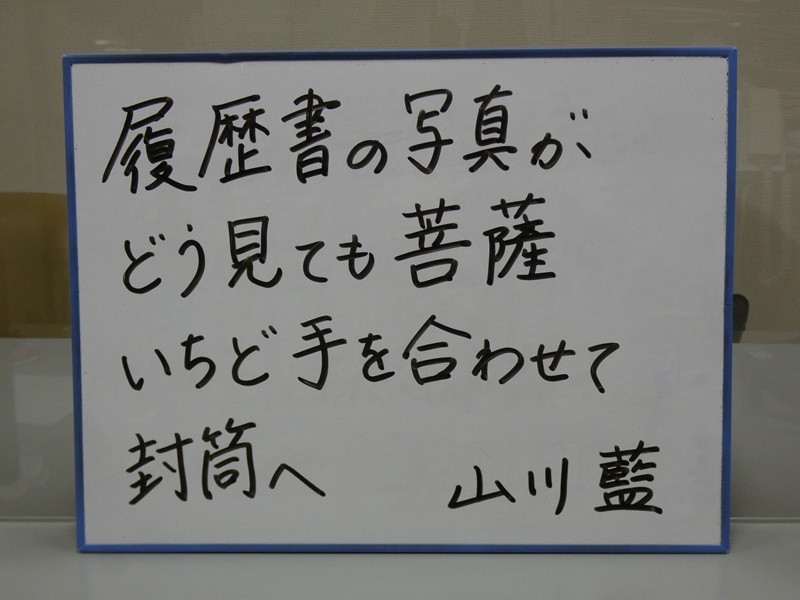 履歴書の写真が
どう見ても菩薩
いちど手を合わせて
封筒へ 山川藍